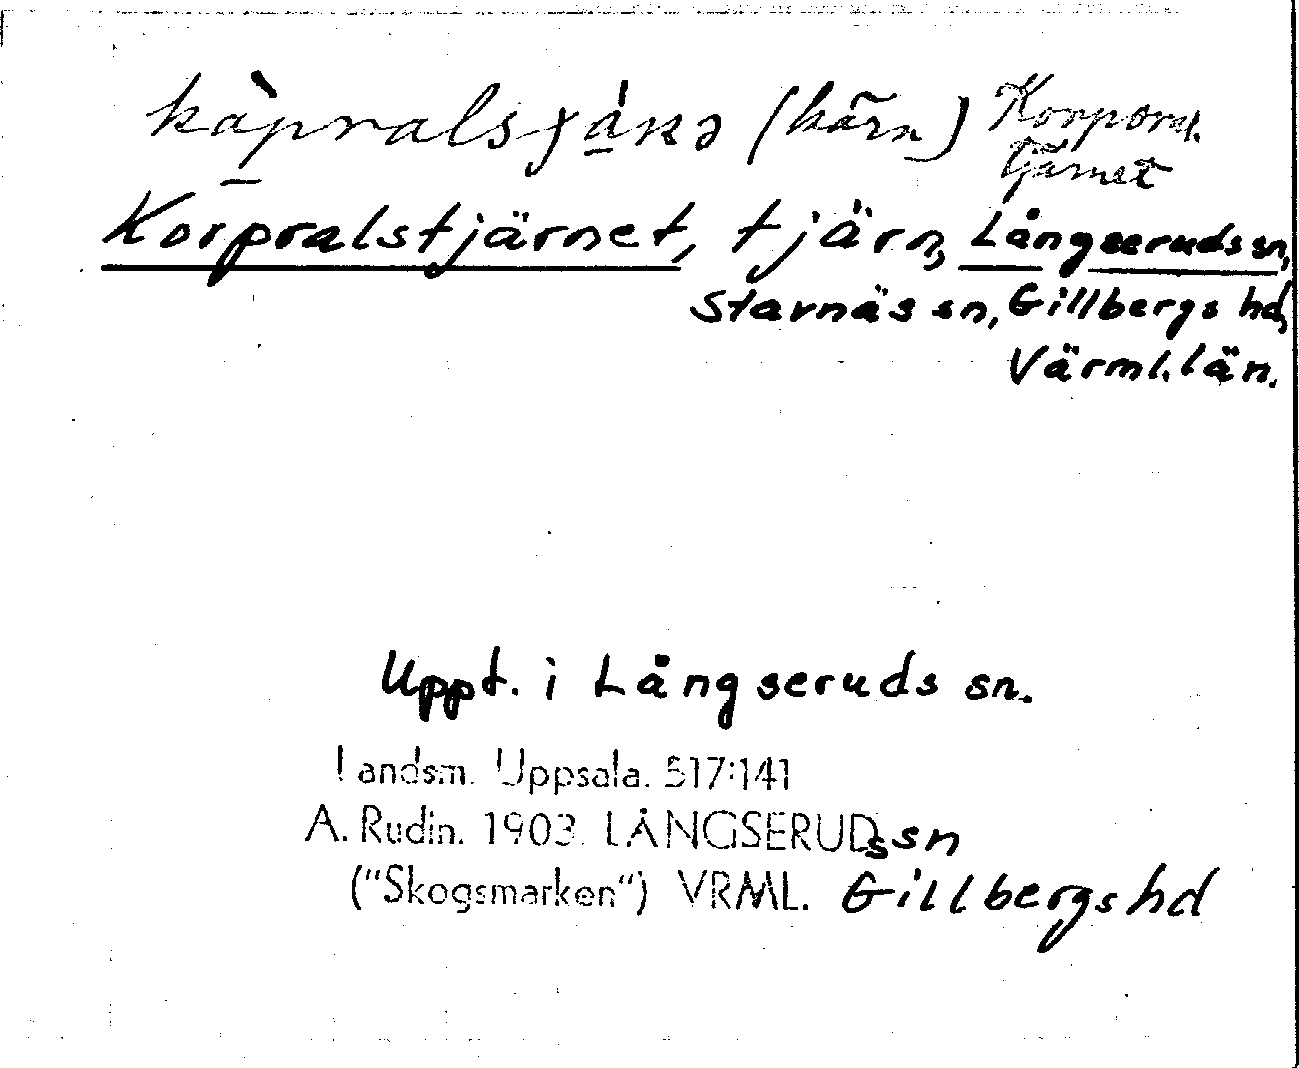 kàpralsjänə (kärn) Korporal.
tjärnet
Korpralstjärnet, tjärn, Långseruds sn,
Stavnäs sn, Gillbergs hd,
Värml. län.
Uppt. i Långseruds sn.
Landsm. Uppsala. 517:141
A. Rudin. 1903. LÅNGSERUDs sn
("Skogsmarken") VRML. Gillbergs hd